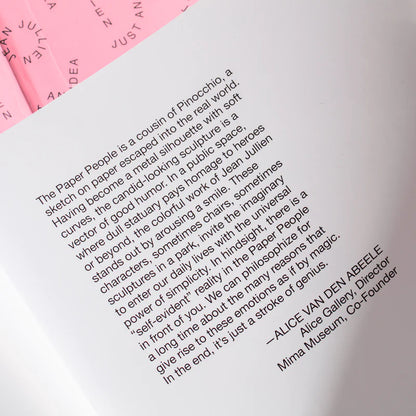 JEAN JULLIEN
JUST AN IDEA
The Paper People is a cousin of Pinocchio, a
sketch on paper escaped into the real world.
Having become a metal silhouette with soft
curves, the candid-looking sculpture is a
vector of good humor. In a public space,
where dull statuary pays homage to heroes
or beyond, the colorful work of Jean Jullien
stands out by arousing a smile. These
characters, sometimes chairs, sometimes
sculptures in a park, invite the imaginary
to enter our daily lives with the universal
power of simplicity. In hindsight, there is a
“self-evident” reality in the Paper People
in front of you. We can philosophize for
a long time about the many reasons that
give rise to these emotions as if by magic.
In the end, it’s just a stroke of genius.
—ALICE VAN DEN ABEELE
Alice Gallery, Director
Mima Museum, Co-Founder